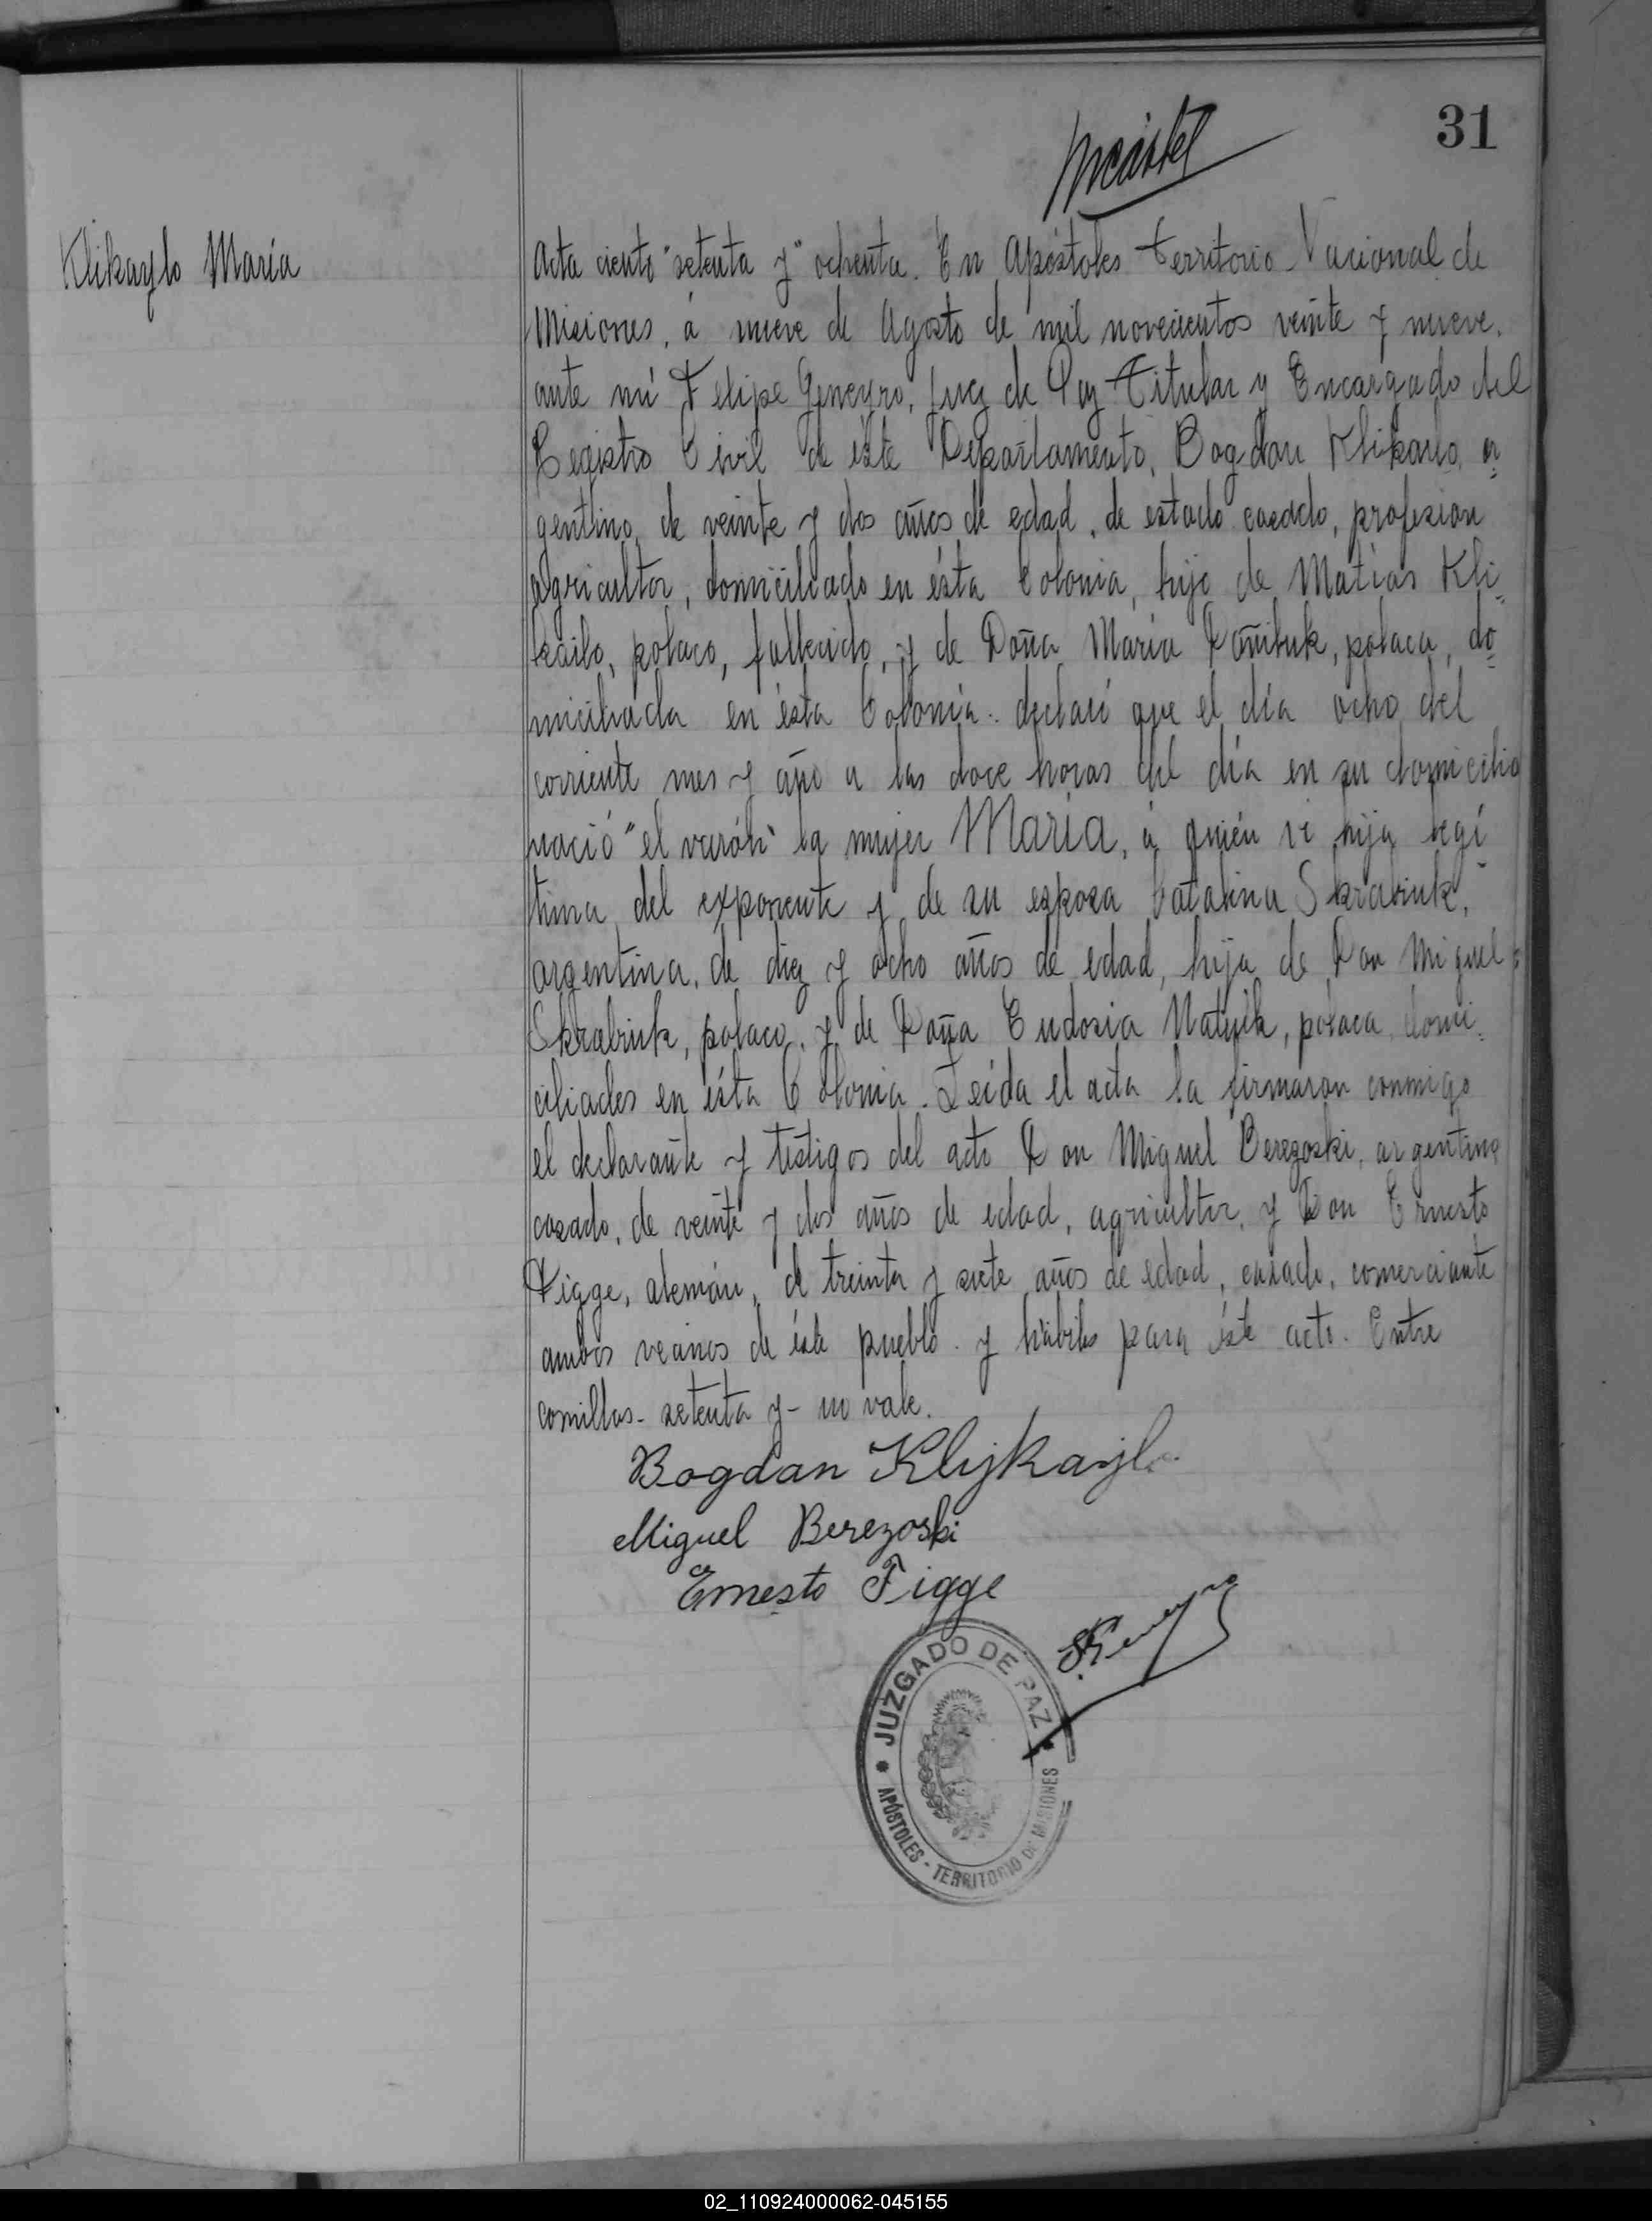 31
Klikaylo María
Acta ciento "setenta y" ochenta. En Apóstoles Territorio Nacional de
Misiones, á nueve de Agosto de mil novecientos veinte y nueve,
ante mí Felipe Geneyro, Juez de Paz Titular y Encargado del
Registro Civil de éste Departamento, Bogdan Klikailo, ar=
gentino, de veinte y dos años de edad, de estado casado, profesion
agricultor, domiciliado en ésta Colonia, hijo de Matias Kli=
kailo, polaco, fallecido, y de Doña María, polaca, do=
miciliada en ésta Colonia: declaró que el día ocho del
corriente mes y año a las doce horas del día en su domicilio
nació "el varón" la mujer María, á quién vi hija legí
tima del exponente y de su esposa Catalina Skrabiuk,
argentina, de diez y ocho años de edad, hija de Don Miguel
Skrabiuk, polaco, y de Doña Eudosia, polaca, domi=
ciliados en ésta Colonia. Leída el acta la firmaron conmigo
el declarante y testigos del acto Don Miguel Berezoski, argentino
casado, de veinte y dos años de edad, agricultor, y Don Ernesto
Figge, alemán, de treinta y siete años de edad, casado, comerciante
ambos vecinos de éste pueblo y hábiles para éste acto. Entre
comillas - setenta y - no vale.
Bogdan Klijkaylo
Miguel Berezoski
Ernesto Figge
JUZGADO DE PAZ
APÓSTOLES - TERRITORIO DE MISIONES
02_110924000062-045155